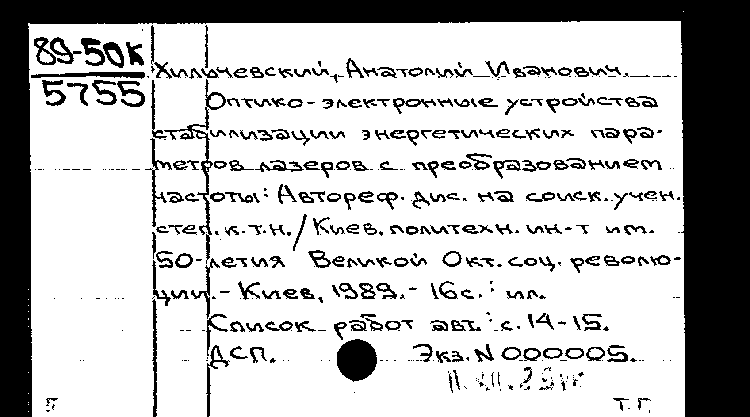 89-50к
5755
Хильчевский, Анатолий Иванович.
Оптико-электронные устройства
стабилизации энергетических пара-
метров лазеров с преобразованием
частоты: Автореф. дис. на соиск. учен.
степ. к.т.н. / Киев. политехн. ин-т им.
50-летия Великой Окт. соц. револю-
ции. - Киев, 1989. - 16с. : ил.
Список работ авт. : с. 14-15.
ДСП. Экз. N 000005.